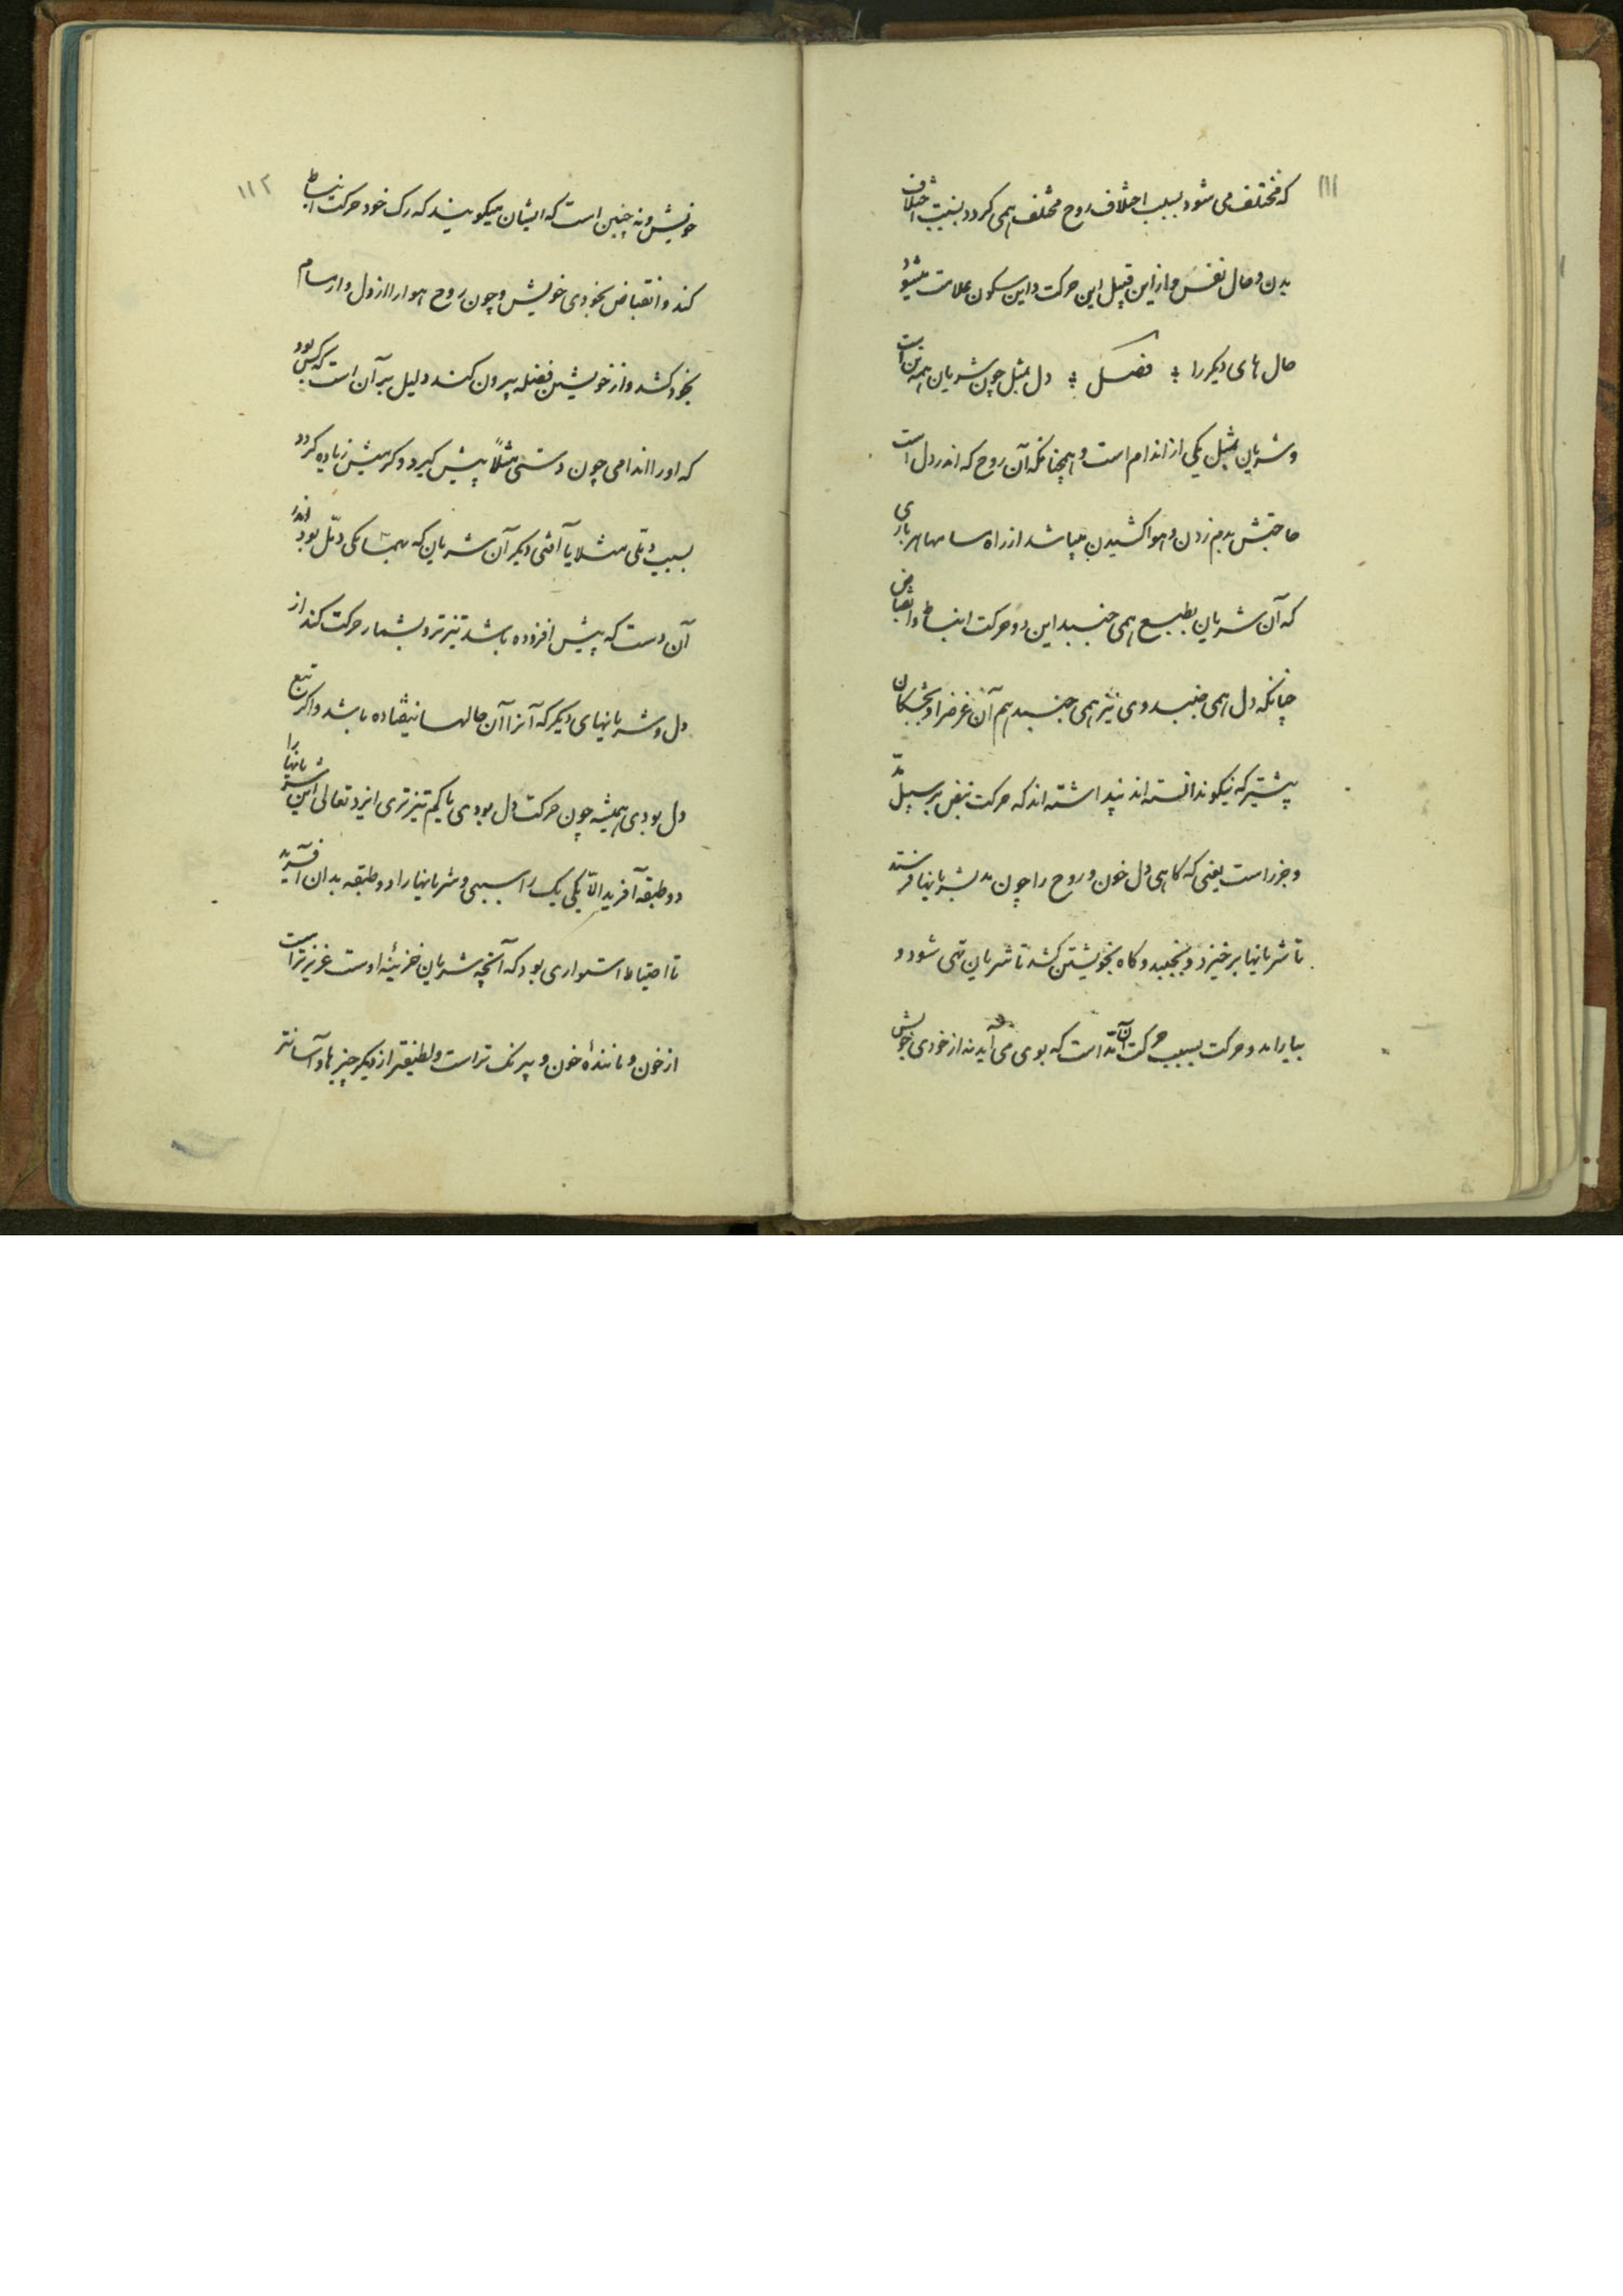 ١١١
که مختلف می شود بسبب اختلاف روح مختلف همی کردد بسبب اختلاف
بدن و حال نفس و ازاین قبیل این حرکت و این سکون علامت میشود
حال های دیکر را فصل دل بمثل چون شریان همه تن است
و شریان بمثل یکی از اندام است و همچنانکه آن روح که اندر دل است
حاجتش بدم زدن و هوا کشیدن میباشد از راه سامها هر باری
که آن شریان بطبع همی جنبد این دو حرکت انبساط و انقباض
چنانکه دل همی جنبد وی نیز همی جنبد هم آن غرض را و بخشکان
پیشتر که نیکو ندانسته اند پنداشته اند که حرکت نبض بر سبیل مدّ
و جزر است یعنی که کاهی دل خون و روح را چون مد بشریانها فرستد
تا شریانها بر خیزد و بجنبد و کاه بخویشتن کشد تا شریان تهی شود و
بیارامد و حرکت بسبب حرکت آن مد است که بوی می آید نه از خودی خویش
١١٢
خویش و نه چنین است که ایشان میکویند که رک خود حرکت انبساط
کند و انقباض بخودی خویش و چون روح هوا را از دل و از سام
بخود کشد و از خویشتن فضله بیرون کند دلیل بر آن است که کس بود
که او را اندامی چون دستی مثلاً پیش کیرد و کرمیش زیاده کردد
بسبب دملی مثلا یا آفتی دیکر آن شریان که بهمسایکی دمّل بود اندر
آن دست که پیش افزوده باشد تیزتر و بشمار حرکت کند از
دل و شریانهای دیکر که آنرا آن حالها نیفتاده باشد و اکر تبع
دل بودی همیشه چون حرکت دل بودی یا کم تیزتری ایزد تعالی این شریانها را
دو طبقه آفرید الاّ یکی یک را سببی و شریانها را دو طبقه بدان آفرید
تا احتیاط استواری بود که آنچه شریان خزینه اوست عزیزتر است
از خون و مانندهٔ خون و بیرنک تر است و لطیفتر از دیکر چیزها و آسانتر